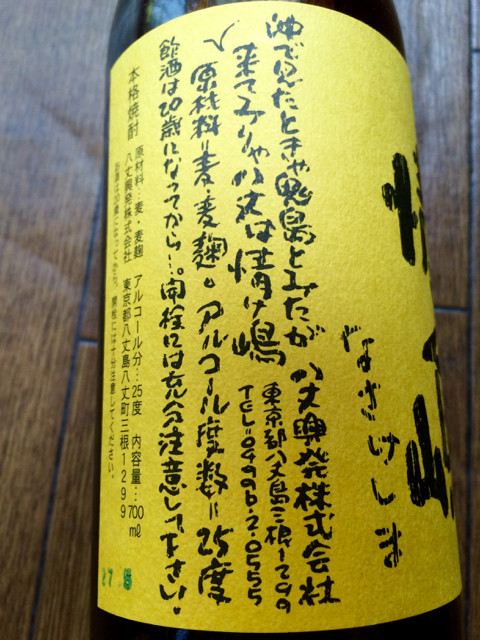 情け嶋
なさけしま
沖で見たときゃ鬼島とみたが 八丈興発株式会社
来てみりゃ八丈は情け嶋
東京都八丈島三根1299
TEL=04996.2.0555
√原材料=麦・麦麹。アルコール度数=25度
飲酒は20歳になってから…。開栓には充分注意して下さい。
本格焼酎
原材料:麦・麦麹 アルコール分…25度 内容量…700ml
八丈興発株式会社 東京都八丈島八丈町三根1299
飲酒は20歳になってから。開栓には十分注意してください。